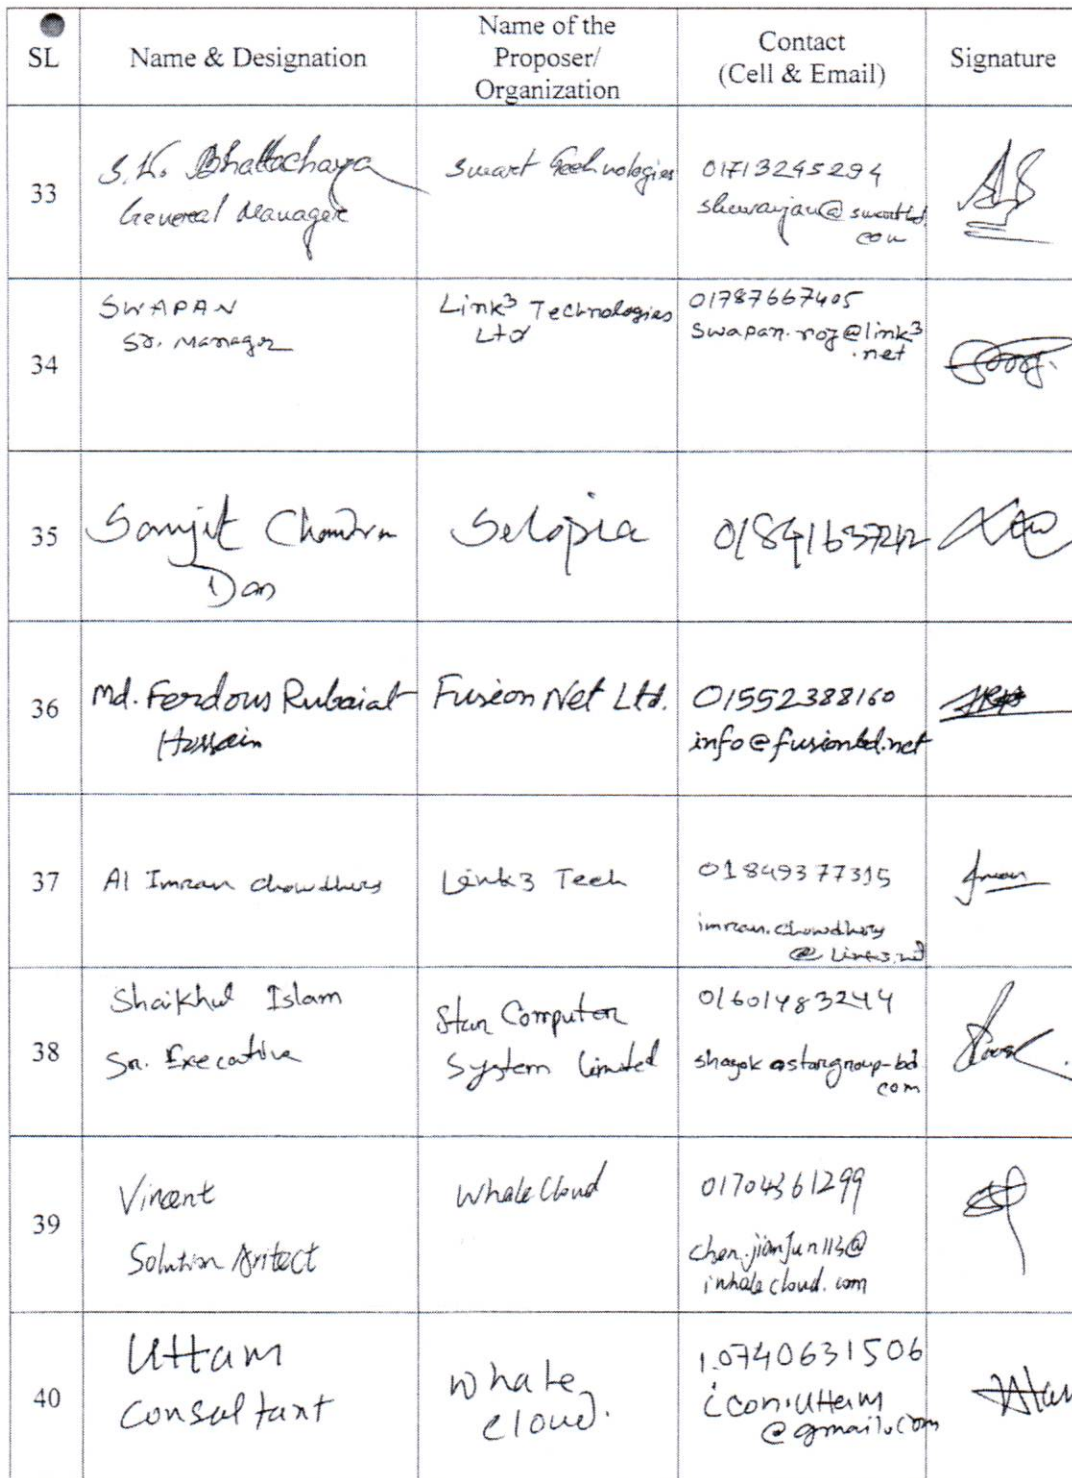 SL
Name & Designation
Name of the
Proposer/
Organization
Contact
(Cell & Email)
Signature
33
S.K. Bhattacharya
General Manager
Smart Technologies
01713245294
34
SWAPAN
Sr. Manager
Link3 Technologies
Ltd
01787667405
swapan.roy@link3
.net
35
Sanjit Chandra
Das
Selopia
36
Md. Ferdous Rubaiat
Hossain
Fusion Net Ltd.
01552388160
info@fusionbd.net
37
Al Imran chowdhury
Link3 Tech
01849377315
imran.chowdhury
@link3.net
38
Shaikhul Islam
Sr. Executive
Star Computer
System limited
01601483244
shayok@stargroup-bd
com
39
Vincent
Solution Aritect
Whale Cloud
01704361299
chen.jianjun113@
iwhalecloud.com
40
Uttam
Consultant
Whale
cloud.
1.0740631506
icon.uttam
@gmail.com